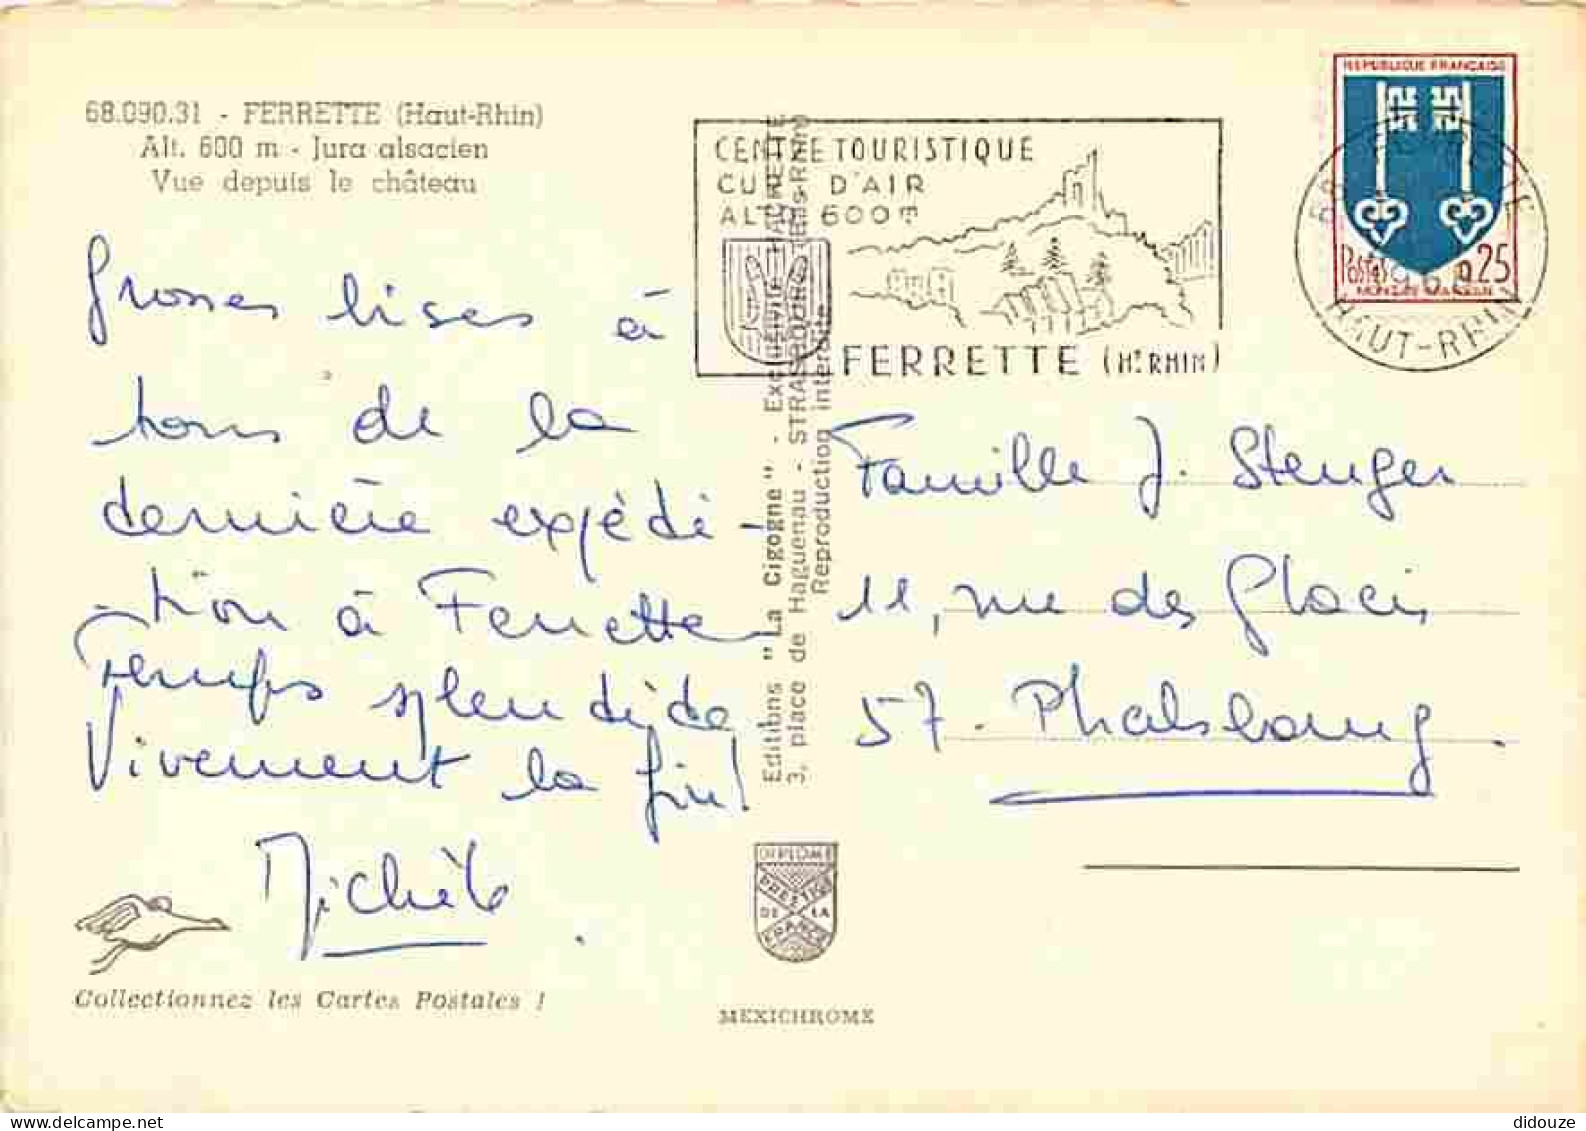 68.090.31 - FERRETTE (Haut-Rhin)
Alt. 600 m - Jura alsacien
Vue depuis le château
Grosses bises à
tous de la
dernière expédi-
-tion à Ferrette
Temps splendide
Vivement la fin!
Michèle
Collectionnez les Cartes Postales !
Editions "La Cigogne" - Exclusivité HACHETTE
3, place de Haguenau - STRASBOURG (Bas-Rhin)
Reproduction interdite
CENTRE TOURISTIQUE
CURE D'AIR
ALTD 600M
FERRETTE (HT RHIN)
REPUBLIQUE FRANÇAISE
Postes 0,25
MONT-DE-MARSAN
68 FERRETTE
HAUT-RHIN
Famille J. Stenger
11, rue des Glacis
57 - Phalsbourg.
DIPLOME
PRESTIGE
DE LA
FRANCE
MEXICHROME
didouze